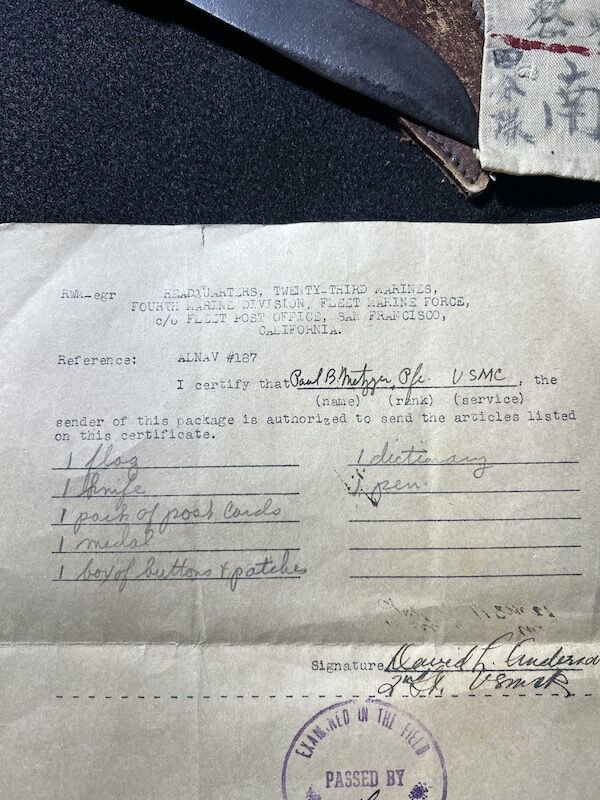 南
RWM-egr HEADQUARTERS, TWENTY-THIRD MARINES,
FOURTH MARINE DIVISION, FLEET MARINE FORCE,
c/o FLEET POST OFFICE, SAN FRANCISCO,
CALIFORNIA.
Reference: ALNAV #187
I certify that Paul B. Metzger, Pfc. USMC, the
(name) (rank) (service)
sender of this package is authorized to send the articles listed
on this certificate.
1 flag 1 dictionary
1 knife 1 pen.
1 pack of post cards
1 medal
1 box of buttons & patches
Signature David L. Anderson
2nd Lt. USMCR
EXAMINED IN THE FIELD
PASSED BY